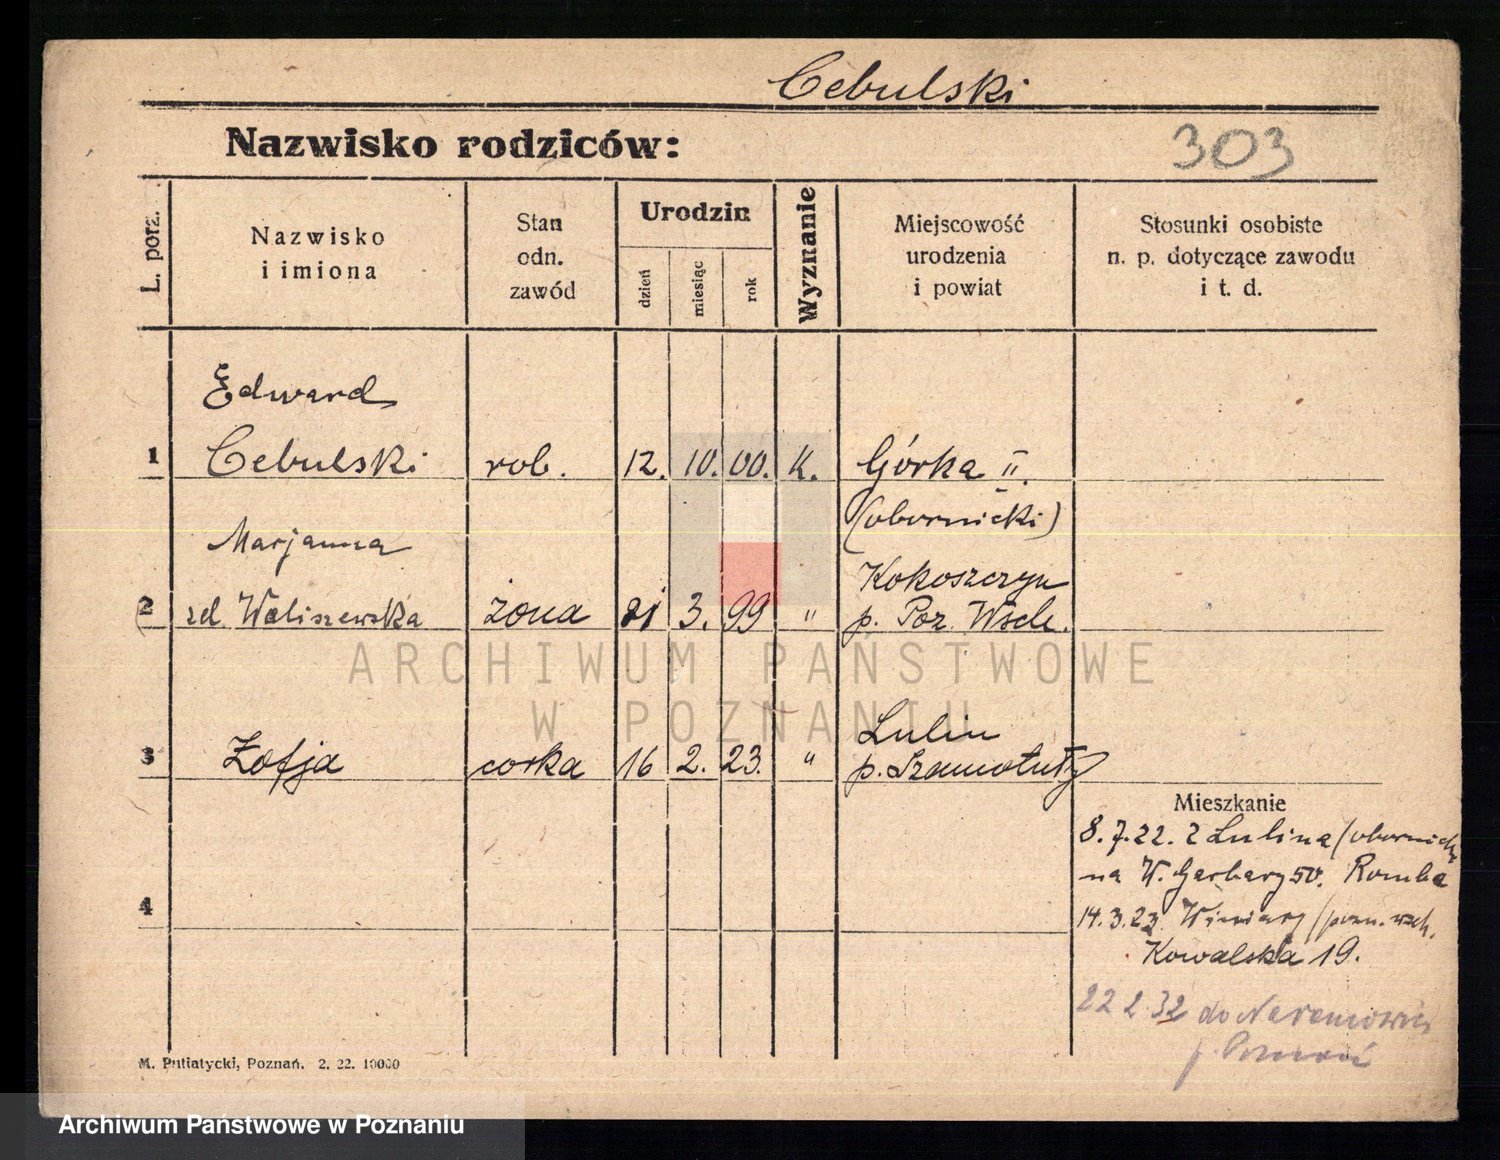 Cebulski
Nazwisko rodziców:
303
L. porz.
Nazwisko
i imiona
Stan
odn.
zawód
Urodzin
dzień
miesiąc
rok
Wyznanie
Miejscowość
urodzenia
i powiat
Stosunki osobiste
n. p. dotyczące zawodu
i t. d.
Edward
1 Cebulski rob. 12. 10. 00. K. Górka II.
(obornicki)
Marjanna
Kokoszczyn
2 zd Waliszewska żona 21 3. 99 " p. Poz. Wsch.
ARCHIWUM PAŃSTWOWE
W POZNANIU
Lulin
3 Zofja corka 16 2. 23. " p. Szamotuły
Mieszkanie
8.7.22. z Lulina (obornicki
na W. Garbary 50. Romba
4
14.3.23 Winiary (pozn. wsch.
Kowalska 19.
22 2 32 do Naramowic
p. Poznań
M. Putiatycki, Poznań. 2. 22. 10000
Archiwum Państwowe w Poznaniu